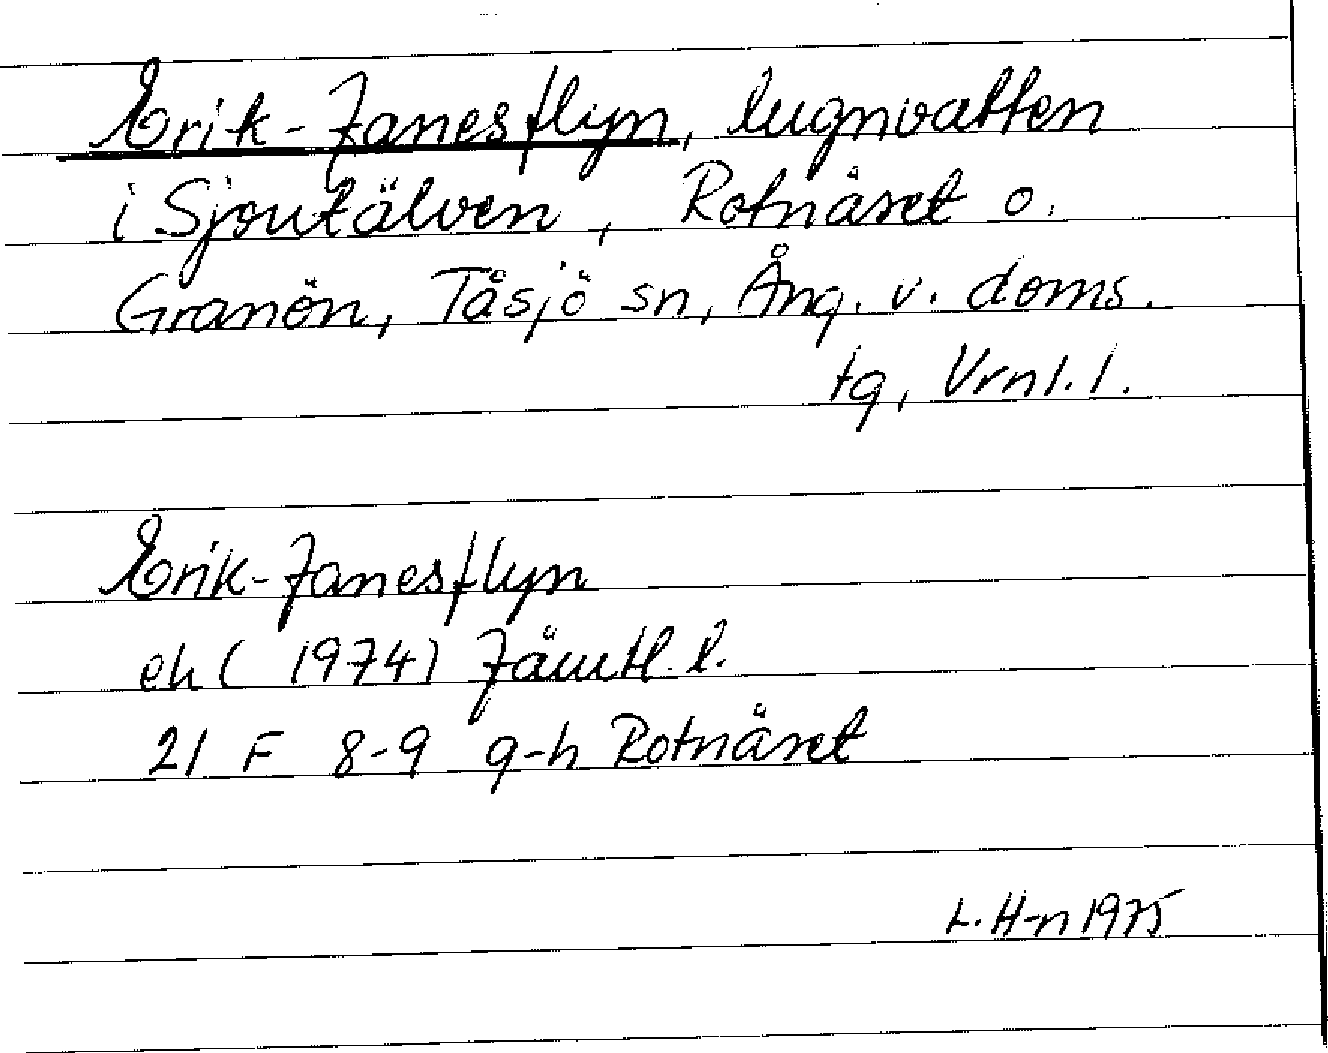 Erik-Janesflyn, lugnvatten
i Sjoutälven, Rotnäset o.
Granön, Tåsjö sn, Ång. v. doms.
tg, Vrnl. l.
Erik-Janesflyn
ek (1974) Jämtl. l.
21 F 8-9 g-h Rotnäset
L. H-n 1975